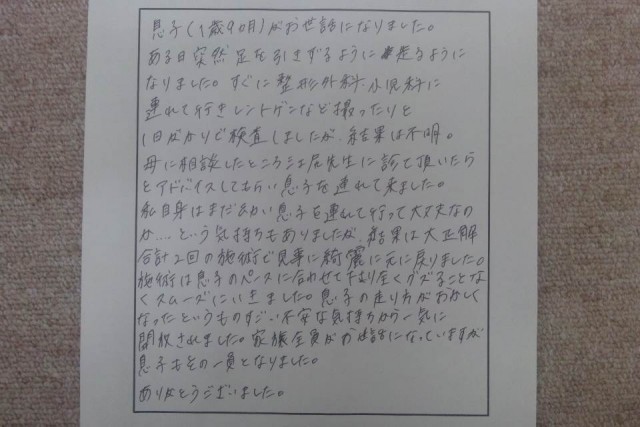 息子(1歳9ヵ月)がお世話になりました。
ある日突然足を引きずるように走るように
なりました。すぐに整形外科、小児科に
連れて行きレントゲンなど撮ったりと
1日がかりで検査しましたが、結果は不明。
母に相談したところ三居先生に診て頂いたら
とアドバイスしてもらい息子を連れて来ました。
私自身はまだ幼い息子を連れて行って大丈夫なの
か…という気持ちもありましたが、結果は大正解
合計2回の施術で見事に綺麗に元に戻りました。
施術は息子のペースに合わせて下さり全くグズることな
くスムーズにいきました。息子の走り方がおかしく
なったというものすごい不安な気持ちから一気に
開放されました。家族全員がお世話になっていますが
息子もその一員となりました。
ありがとうございました。